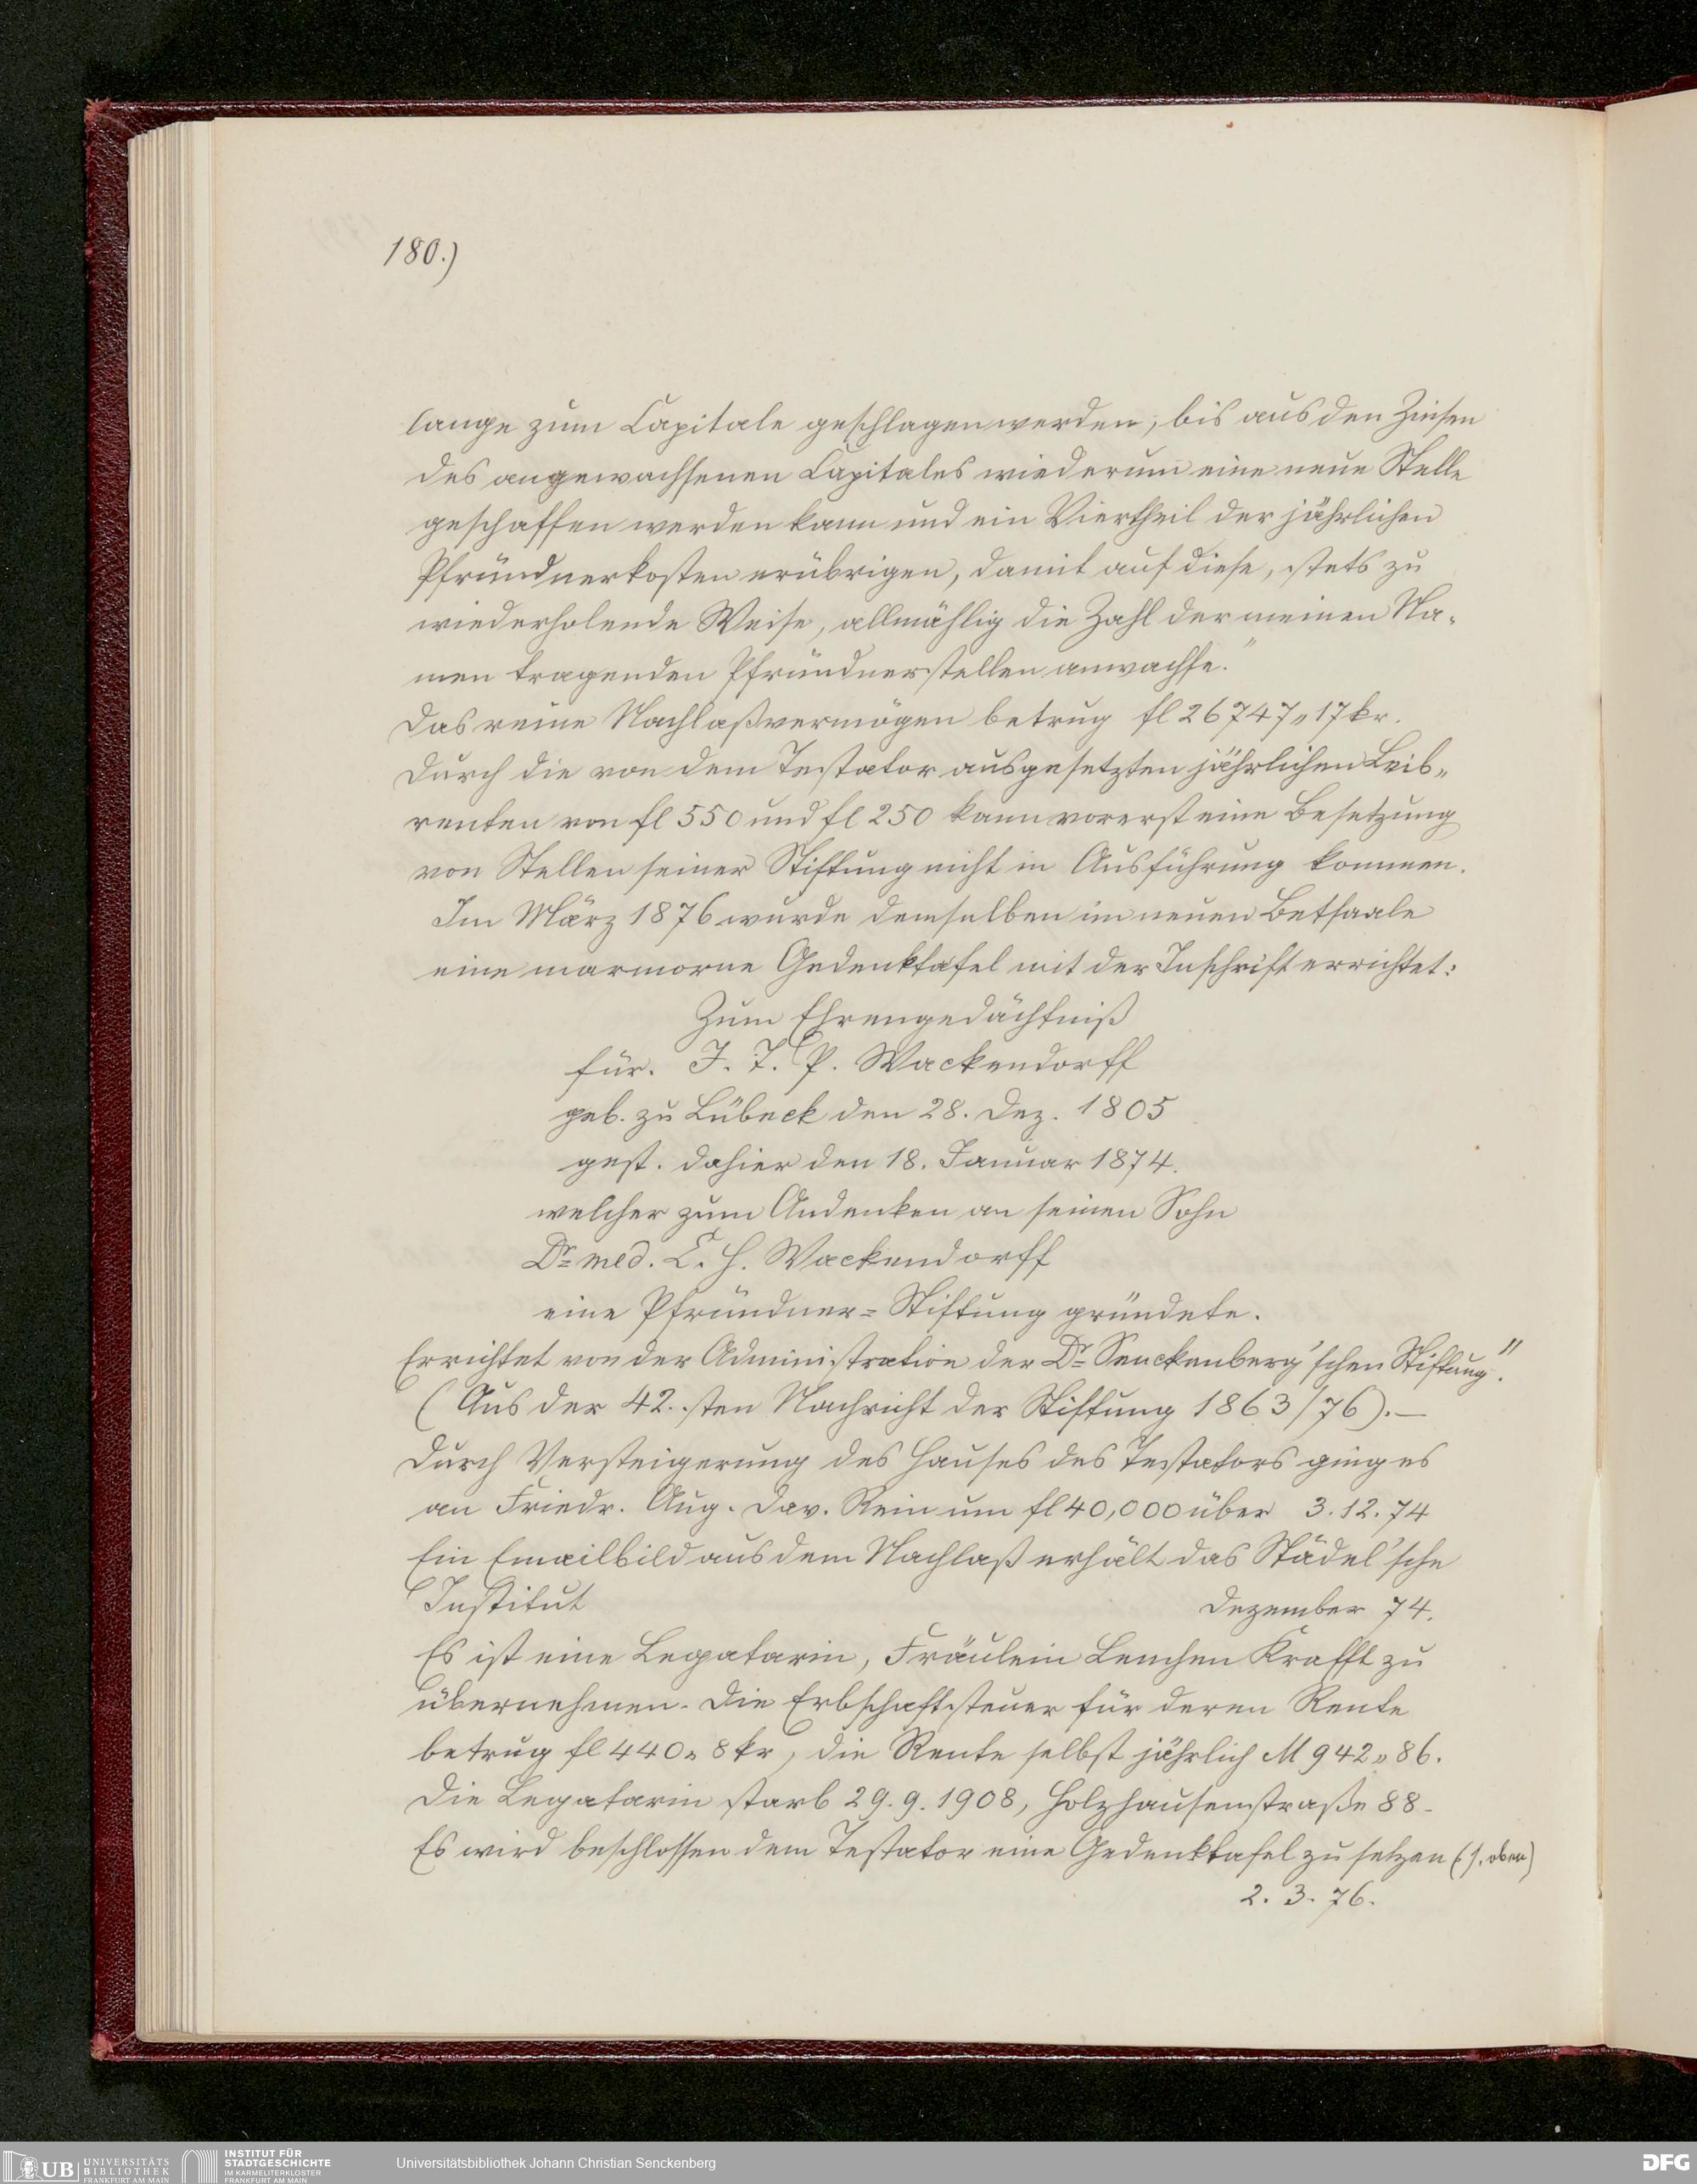 180.)
lange zum Capitale geschlagen werden, bis aus den Zinsen
des angewachsenen Capitales wiederum eine neue Stelle
geschaffen werden kann und ein Viertheil der jährlichen
Pfründnerkosten erübrigen, damit auf diese, stets zu
wiederholende Weise, allmählig die Zahl der meinen Na-
men tragenden Pfründnerstellen anwachse."
Das reine Nachlaßvermögen betrug fl 26747„17 kr.
Durch die von dem Testator ausgesetzten jährlichen Leib-
renten von fl 550 und fl 250 kann vorerst eine Besetzung
von Stellen seiner Stiftung nicht in Ausführung kommen.
Im März 1876 wurde demselben im neuen Betsaale
eine marmorne Gedenktafel mit der Inschrift errichtet:
Zum Ehrengedächtniß
für. J. T. P. Wackendorff
geb. zu Lübeck den 28. Dez. 1805
gest. dahier den 18. Januar 1874.
welcher zum Andenken an seinen Sohn
Dr med. E. H. Wackendorff
eine Pfründner-Stiftung gründete.
Errichtet von der Administration der Dr Senckenberg'schen Stiftung."
(Aus der 42.sten Nachricht der Stiftung 1863/76).—
Durch Versteigerung des Hauses des Testators ging es
an Friedr. Aug. Dav. Rein um fl 40,000 über 3.12.74
Ein Emailbild aus dem Nachlaß erhält das Städel'sche
Institut Dezember 74.
Es ist eine Legatarin, Fräulein Lenchen Krafft zu
übernehmen. Die Erbschaftsteuer für deren Rente
betrug fl 440„8 kr, die Rente selbst jährlich M 942„86.
Die Legatarin starb 29.9.1908, Holzhausenstraße 88.
Es wird beschlossen dem Testator eine Gedenktafel zu setzen (s. oben)
2. 3. 76.
UB UNIVERSITÄTS
BIBLIOTHEK
FRANKFURT AM MAIN
INSTITUT FÜR
STADTGESCHICHTE
IM KARMELITERKLOSTER
FRANKFURT AM MAIN
Universitätsbibliothek Johann Christian Senckenberg
DFG